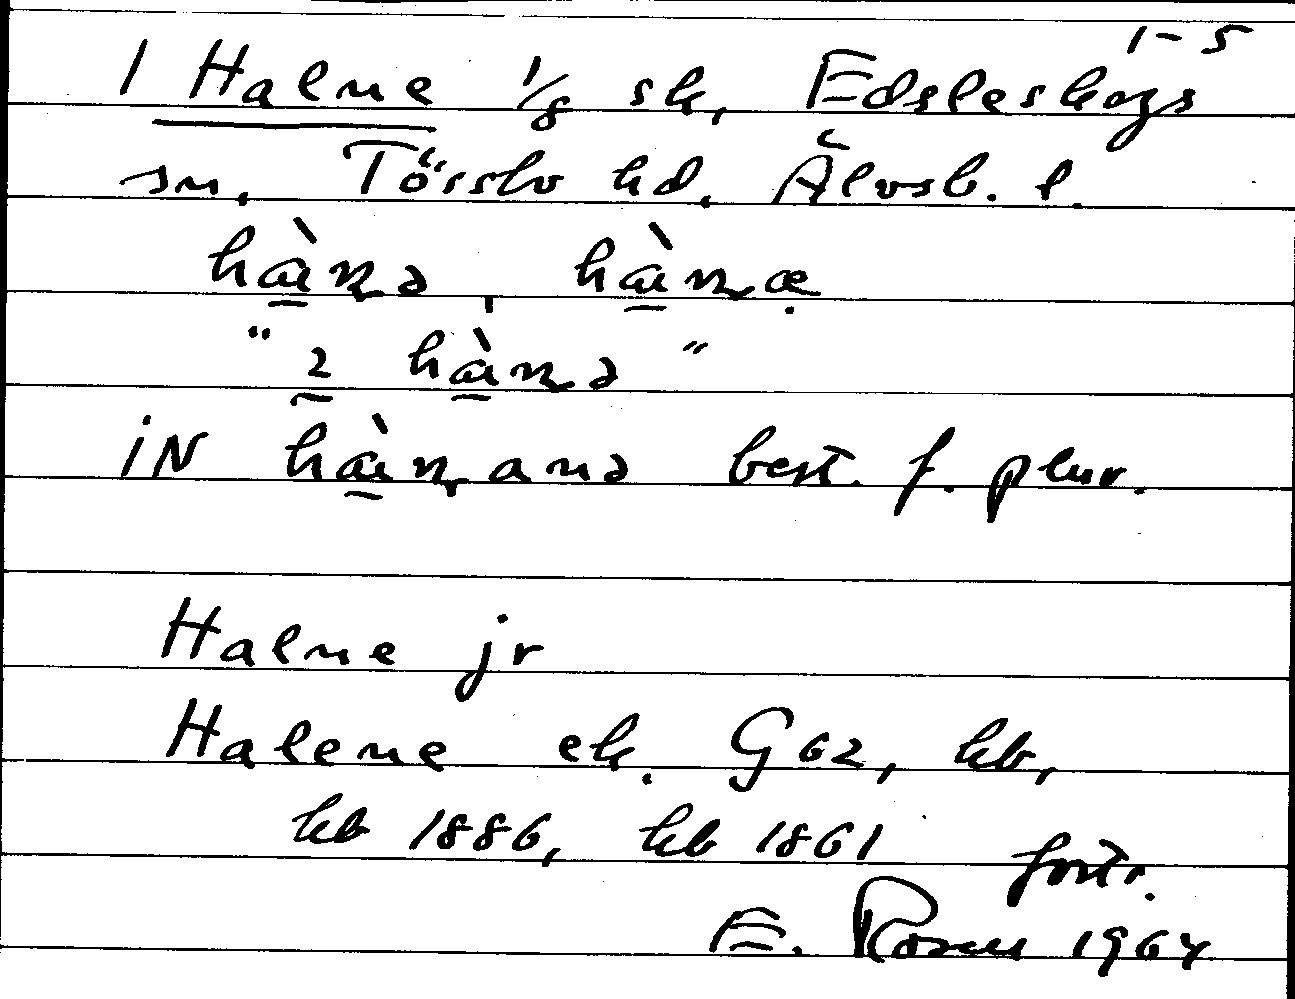 1-5
1 Halne 1/8 sk, Edsleskogs
sn, Tössbo hd. Älvsb. l.
hàṇə, hàṇæ
" 2 hàṇə "
iN hàṇanə best. f. plur.
Halne jr
Halene ek. G62, kb,
kb 1886, kb 1861 forts.
E. Rosell 1964